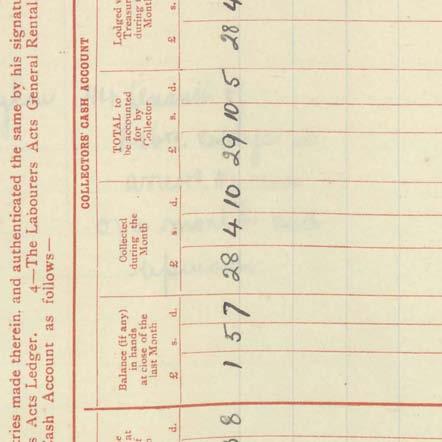 ries made therein, and authenticated the same by his signatu
s Acts Ledger. 4—The Labourers Acts General Rental
ash Account as follows—
COLLECTORS' CASH ACCOUNT
at
d.
8
Balance (if any)
in hands
at close of the
last Month
£ s. d.
1 5 7
Collected
during the
Month
£ s. d.
28 4 10
TOTAL to
be accounted
for by
Collector
£ s. d.
29 10 5
Lodged w
Treasur
during
Month
£ s.
28 4